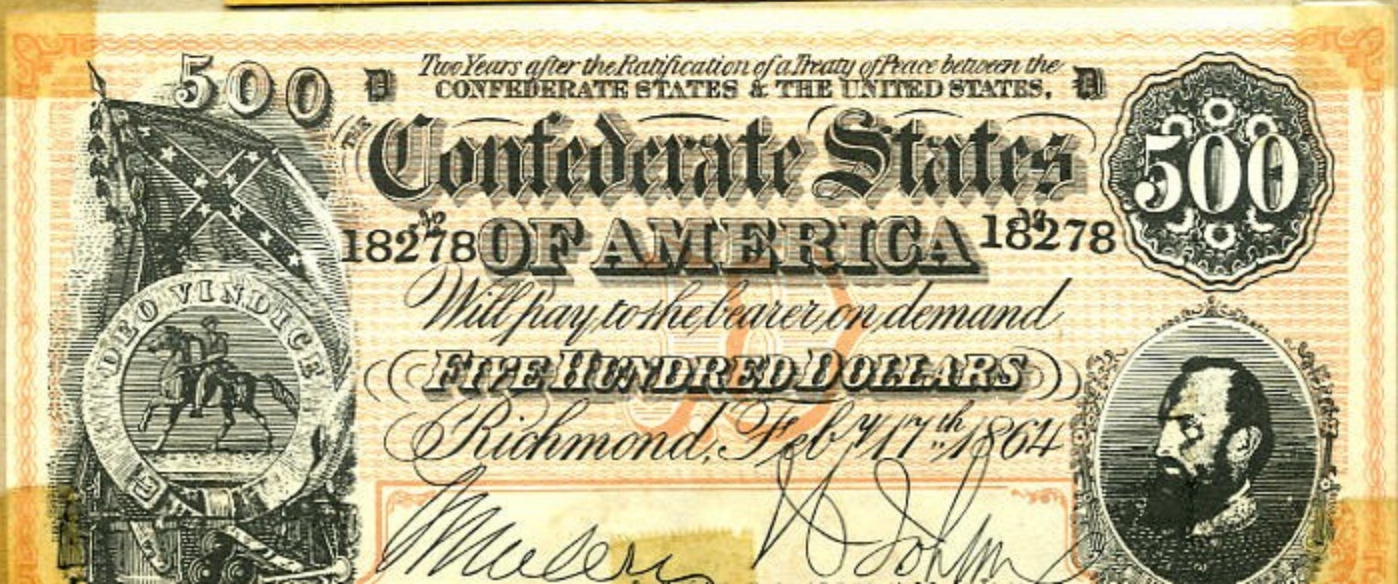 500
Two Years after the Ratification of a Treaty of Peace between the
CONFEDERATE STATES & THE UNITED STATES,
500
THE
Confederate States
18278 OF AMERICA 18278
DEO VINDICE
Will pay to the bearer on demand
FIVE HUNDRED DOLLARS
Richmond, Feby 17th 1864